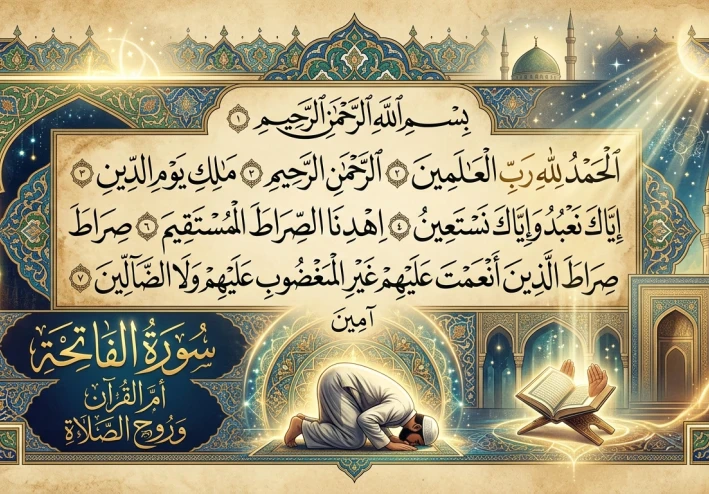 بِسْمِ اللَّهِ الرَّحْمَٰنِ الرَّحِيمِ ١
الْحَمْدُ لِلَّهِ رَبِّ الْعَالَمِينَ ٢ الرَّحْمَٰنِ الرَّحِيمِ ٣ مَالِكِ يَوْمِ الدِّينِ ٣
إِيَّاكَ نَعْبُدُ وَإِيَّاكَ نَسْتَعِينُ ٤ اهْدِنَا الصِّرَاطَ الْمُسْتَقِيمَ ٦ صِرَاطَ
صِرَاطَ الَّذِينَ أَنْعَمْتَ عَلَيْهِمْ غَيْرِ الْمَغْضُوبِ عَلَيْهِمْ وَلَا الضَّآلِّينَ ٧
آمِينَ
سُورَةُ الْفَاتِحَة
أُمُّ الْقُرْآنِ
وَرُوحُ الصَّلَاةِ